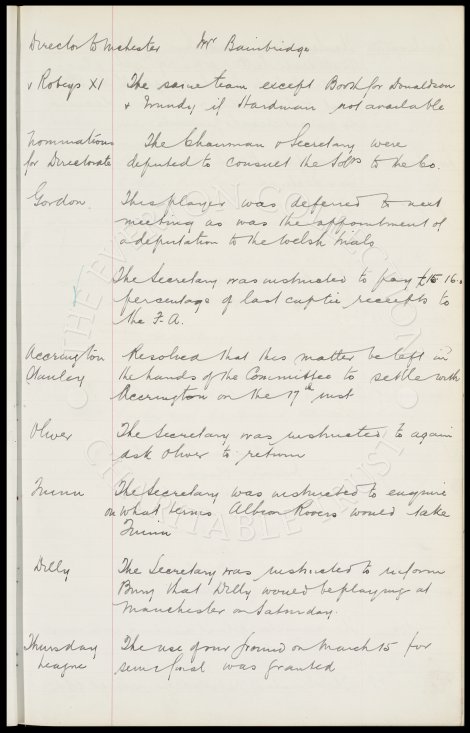 Director to Mchester Mr Bainbridge
v Robeys XI The same team except Booth for Donaldson
& Mundy if Hardman not available
Nominations The Chairman & Secretary were
for Directorate deputed to consult the Solrs to the Co.
Gordon This player was deferred to next
meeting as was the appointment of
a deputation to the Welsh trials
The Secretary was instructed to pay £16
percentage of last cuptie receipts to
the F.A.
Accrington Resolved that this matter be left in
Stanley the hands of the Committee to settle with
Accrington on the 17th inst
Oliver The Secretary was instructed to again
ask Oliver to return
Quinn The Secretary was instructed to enquire
on what terms Albion Rovers would take
Quinn
Dilly The Secretary was instructed to inform
Bury that Dilly would be playing at
Manchester on Saturday.
Thursday The use of our ground on March 15 for
League semi final was granted
THE EVERTON COLLECTION
CHARITABLE TRUST